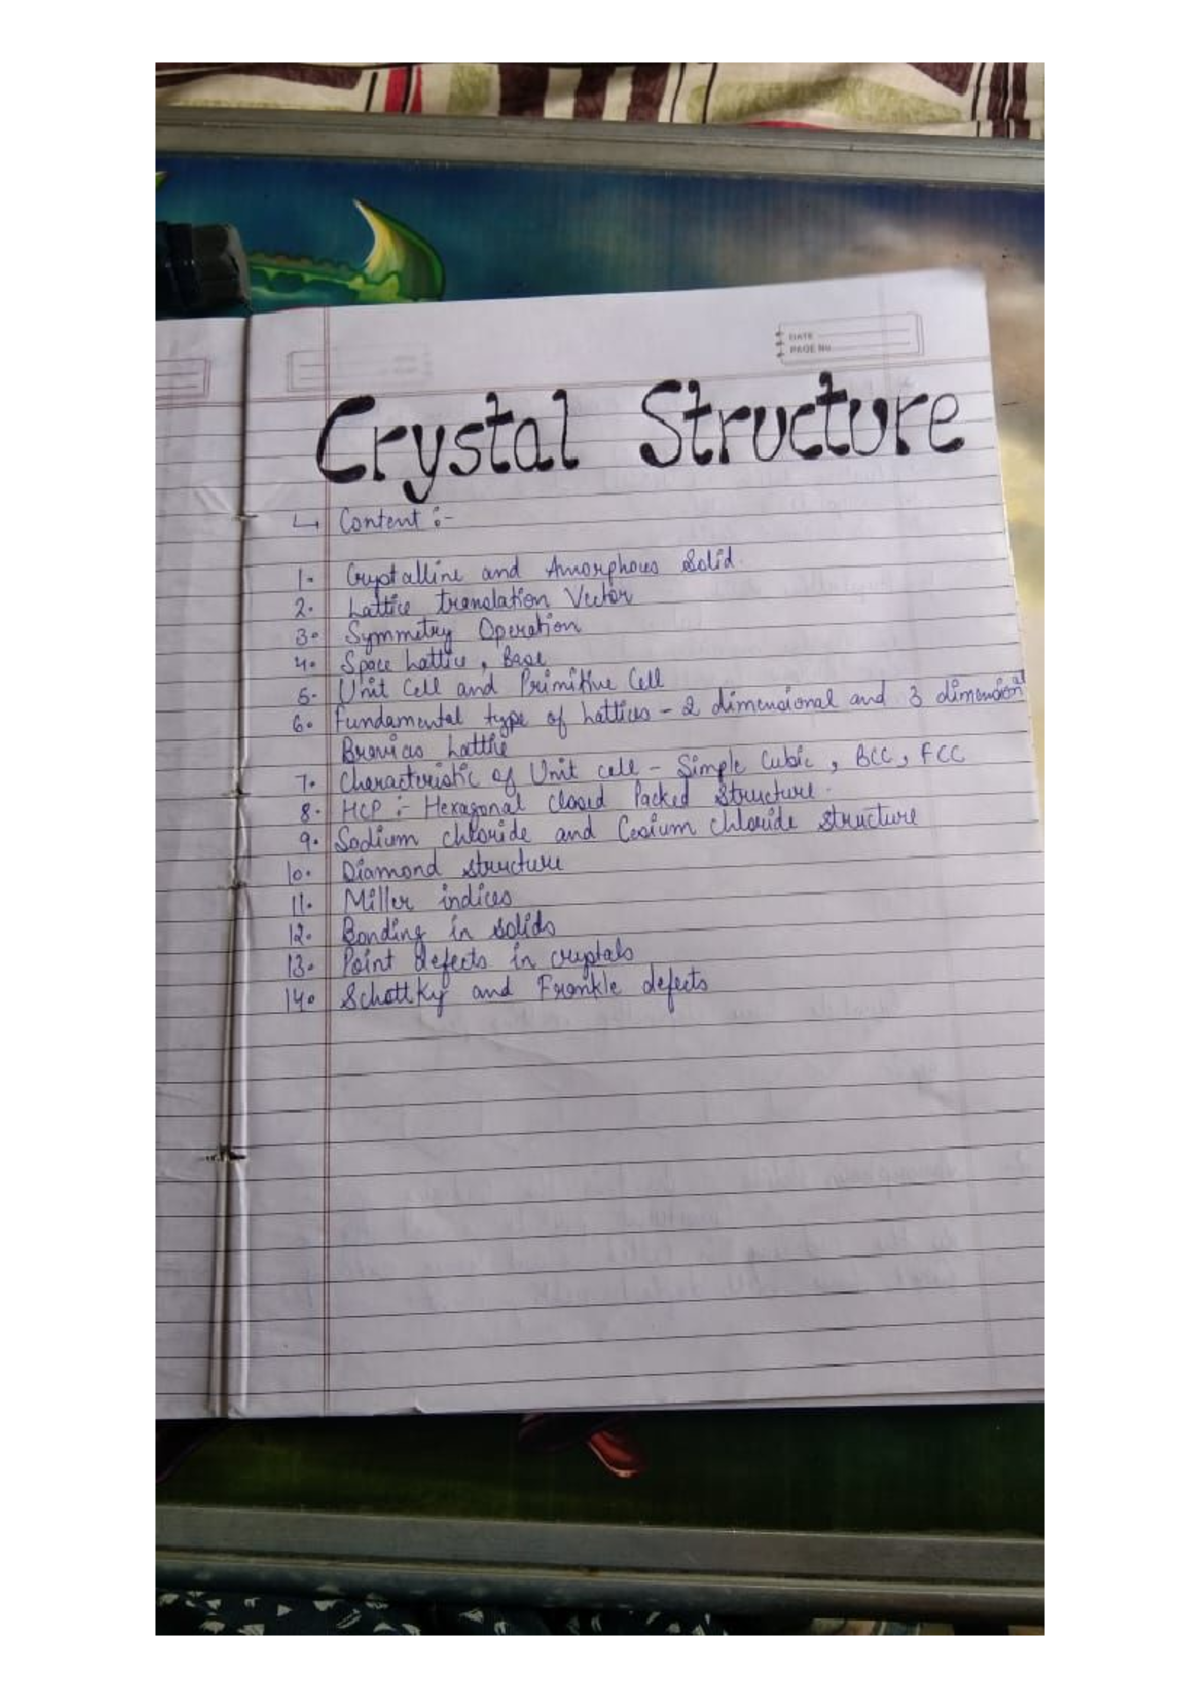 DATE
PAGE No.
Crystal Structure
↳ Content :-
1. Crystalline and Amorphous Solid.
2. Lattice translation Vector
3. Symmetry Operation
4. Space Lattice, Base
5. Unit Cell and Primitive Cell
6. Fundamental type of Lattices - 2 dimensional and 3 dimensional
Bravias Lattie
7. Characteristic of Unit cell - Simple Cubic, BCC, FCC
8. HCP :- Hexagonal closed Packed Structure.
9. Sodium chloride and Cesium chloride structure
10. Diamond structure
11. Miller indices
12. Bonding in solids
13. Point defects in crystals
14. Schottky and Frenkle defects